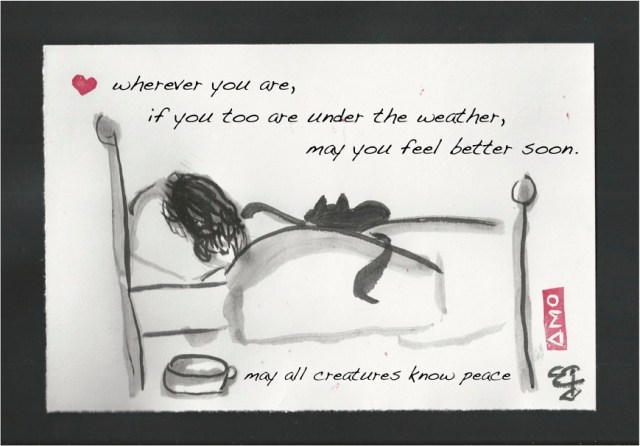 wherever you are,
if you too are under the weather,
may you feel better soon.
AMO
may all creatures know peace